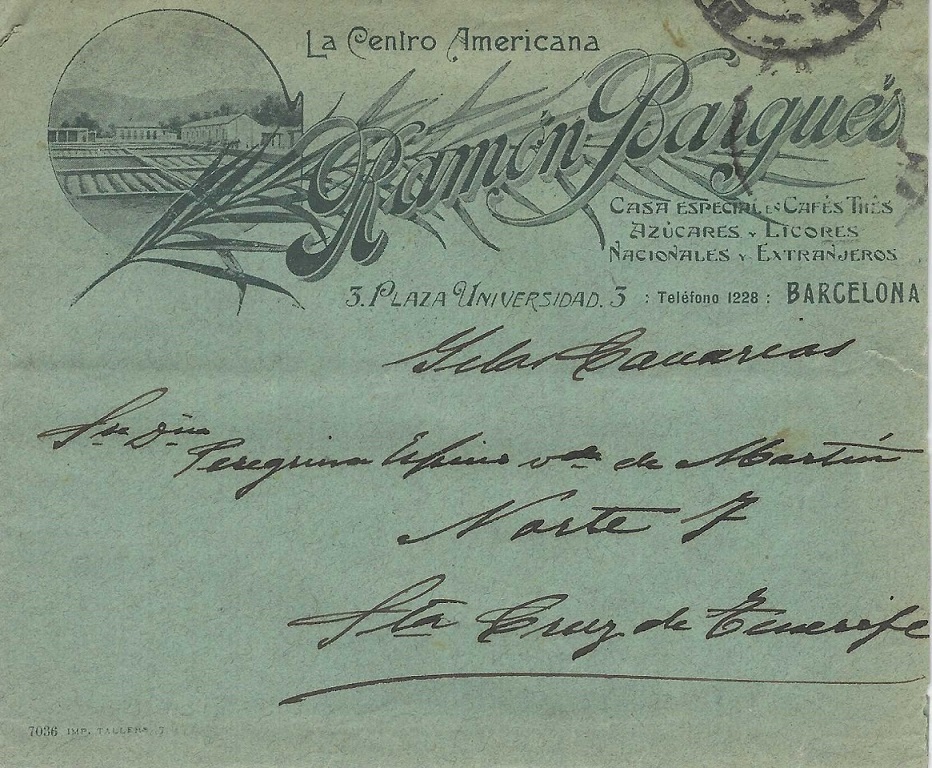 La Centro Americana
Ramón Barqués
CASA ESPECIAL EN CAFÉS THÉS
AZÚCARES Y LICORES
NACIONALES Y EXTRANJEROS
3. PLAZA UNIVERSIDAD. 3 : Teléfono 1228 : BARCELONA
Islas Canarias
Sra Dña
Peregrina Espino vda de Martín
Norte 7
Sta Cruz de Tenerife
7036 IMP. TALLERS 7